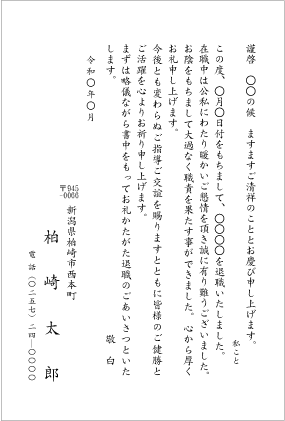 謹啓　〇〇の候　ますますご清祥のこととお慶び申し上げます。
私こと
この度、〇月〇日付をもちまして、〇〇〇〇を退職いたしました。
在職中は公私にわたり暖かいご懇情を頂き誠に有り難うございました。
お陰をもちまして大過なく職責を果たす事ができました。心から厚く
お礼申し上げます。
今後とも変わらぬご指導ご交誼を賜りますとともに皆様のご健勝と
ご活躍を心よりお祈り申し上げます。
まずは略儀ながら書中をもってお礼かたがた退職のごあいさつといた
します。
敬白
令和〇年〇月
〒945-0066
新潟県柏崎市西本町
柏崎太郎
電話（〇二五七）二四―〇〇〇〇